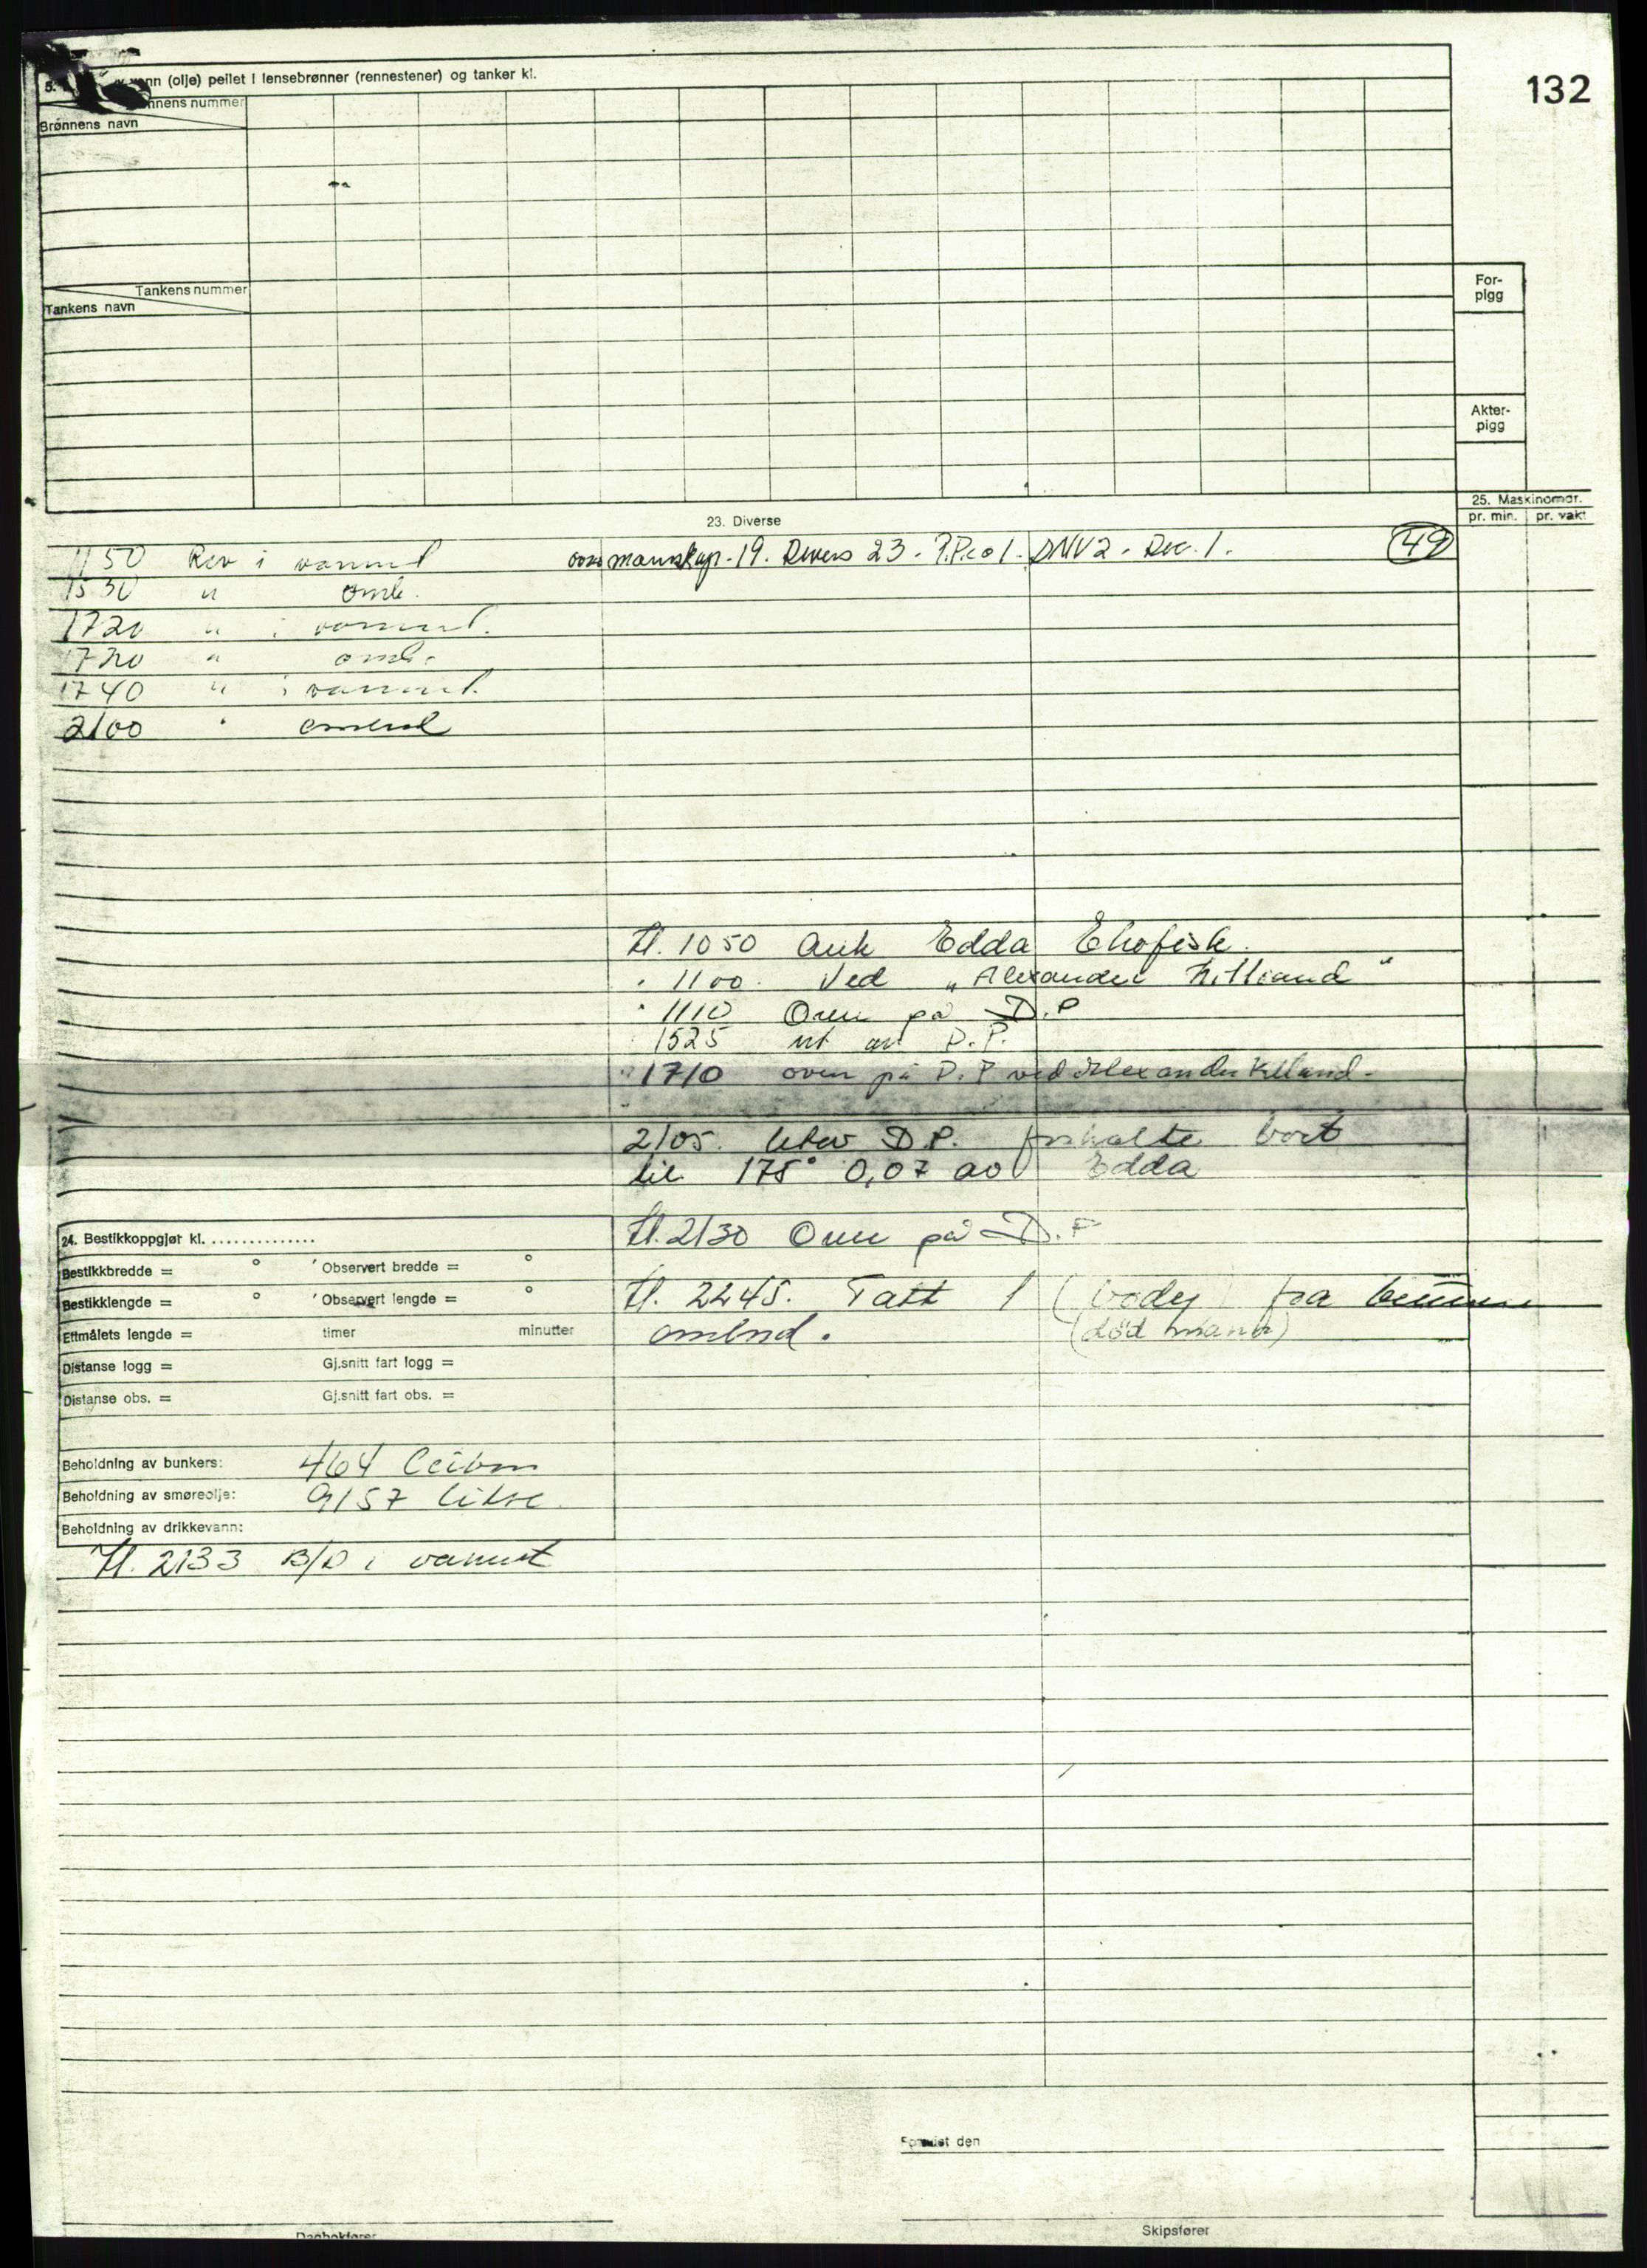 132
5. vann (olje) peilet i lensebrønner (rennestener) og tanker kl.
nnens nummer
Brønnens navn
Tankens nummer
Tankens navn
For-
pigg
Akter-
pigg
25. Maskinomdr.
pr. min. pr. vakt
23. Diverse
1150 Rov i vannet
manskap. 19. Divers 23. DNV 2. 1. 49
1530 " omb.
1720 " i vannet.
1720 " omb.
1740 " i vannet.
2100 " ombord
Kl. 1050 Ank Edda Ekofisk.
" 1100. Ved "Alexander Killand"
" 1110 Over på D.P
1525 ut av D.P.
" 1710 over på D.P ved Alexander Killand.
2105. D.P. forhalte bort
til 175° 0,07 av Edda
24. Bestikkoppgjør kl. ..............
Kl. 2130 Over på D.P
Bestikkbredde = ° ' Observert bredde = °
Bestikklengde = ° ' Observert lengde = °
Kl. 2245. Tatt 1 (body) fra
Ettmålets lengde = timer minutter
ombord. (død mann)
Distanse logg = Gj.snitt fart logg =
Distanse obs. = Gj.snitt fart obs. =
Beholdning av bunkers: 464
Beholdning av smøreolje: 9157 litre
Beholdning av drikkevann:
Kl. 2133 B/D i vannet
den
Dagbokfører
Skipsfører